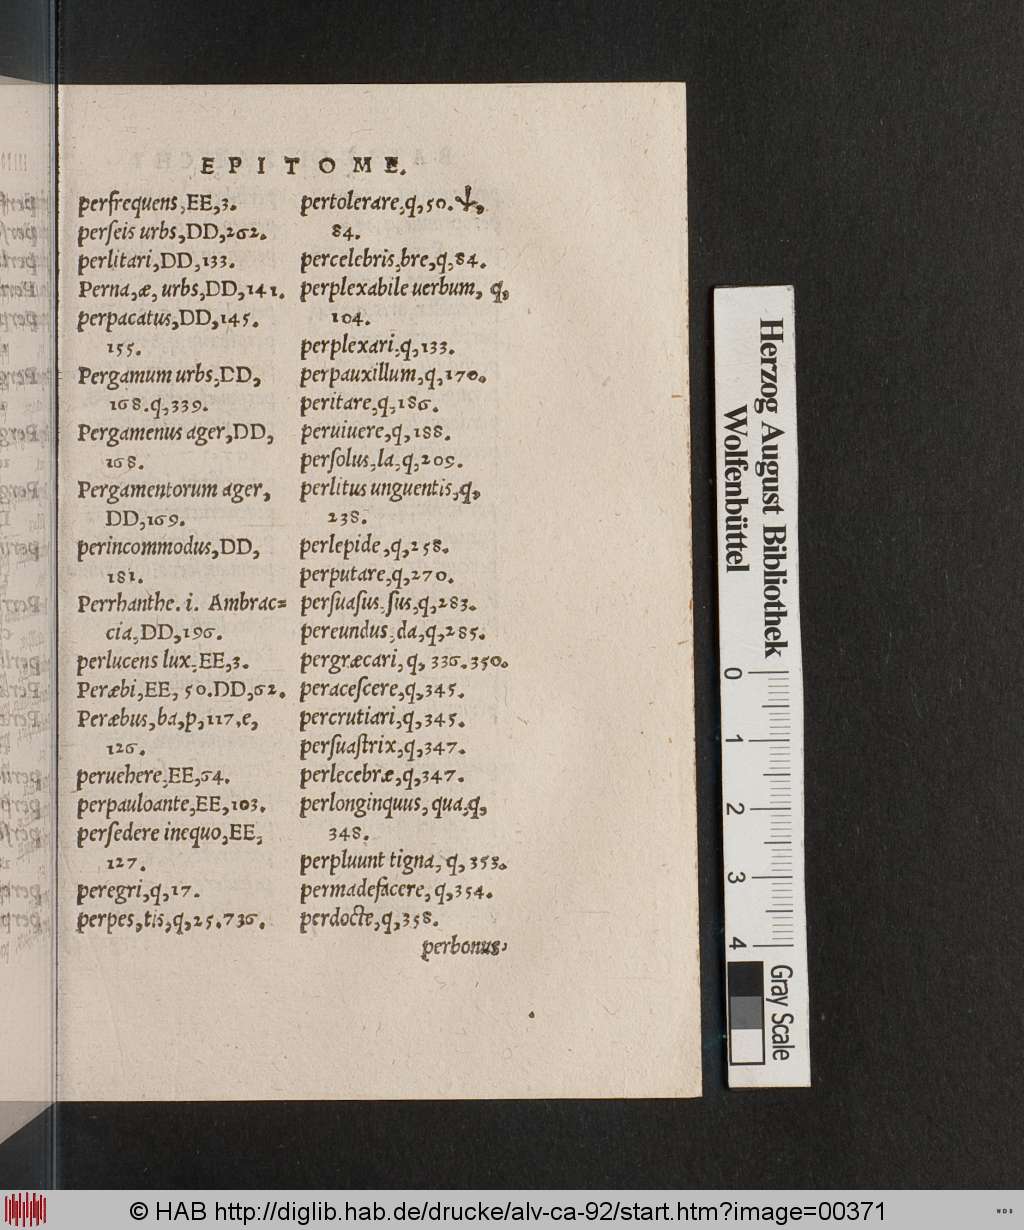 EPITOME.
perfrequens,EE,3.
perſeis urbs,DD,262.
perlitari,DD,133.
Perna,æ, urbs,DD,141.
perpacatus,DD,145.
155.
Pergamum urbs,DD,
168.q,339.
Pergamenus ager,DD,
168.
Pergamentorum ager,
DD,169.
perincommodus,DD,
181.
Perrhanthe. i. Ambrac=
cia,DD,196.
perlucens lux,EE,3.
Peræbi,EE, 50.DD,62.
Peræbus,ba,p,117.e,
126.
peruehere,EE,64.
perpauloante,EE,103.
perſedere inequo,EE,
127.
peregri,q,17.
perpes,tis,q,25.736.
pertolerare,q,50.
84.
percelebris,bre,q,84.
perplexabile uerbum, q,
104.
perplexari,q,133.
perpauxillum,q,170.
peritare,q,186.
peruiuere,q,188.
perſolus,la,q,209.
perlitus unguentis,q,
238.
perlepide,q,258.
perputare,q,270.
perſuaſus,ſus,q,283.
pereundus,da,q,285.
pergræcari,q, 336.350.
peraceſcere,q,345.
percrutiari,q,345.
perſuaſtrix,q,347.
perlecebræ,q,347.
perlonginquus, qua,q,
348.
perpluunt tigna, q, 353.
permadefacere, q,354.
perdocte,q,358.
perbonus,
Herzog August Bibliothek
Wolfenbüttel
0
1
2
3
4
Gray Scale
© HAB http://diglib.hab.de/drucke/alv-ca-92/start.htm?image=00371